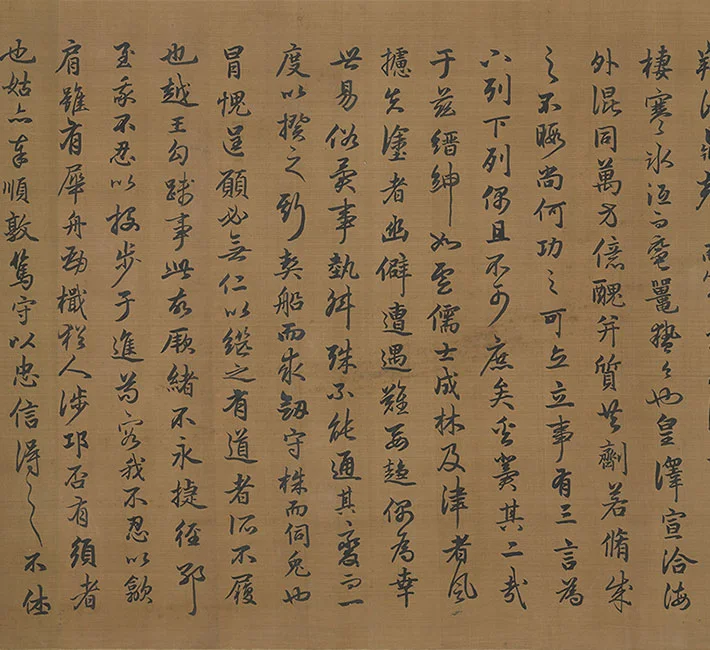 棲寒冰沍而黿鼉蟄今也皇澤宣洽海
外混同萬方億醜并質共劑若脩成
之不暇尚何功之可立立事有三言為
下列下列偶且不可庶矣奚冀其二哉
于茲縉紳如雲儒士成林及津者風
攄失塗者幽僻遭遇難要趨偶為幸
世易俗異事埶舛殊不能通其變而一
度以揆之斯契船而求劒守株而伺兔也
冒愧逞願必無仁以繼之有道者所不履
也越王勾踐事此故厥緒不永捷徑邪
至我不忍以投步于進苟容我不忍以歙
肩雖有犀舟勁檝猶人涉卬否有須者
也姑亦奉順敦篤守以忠信得之不休